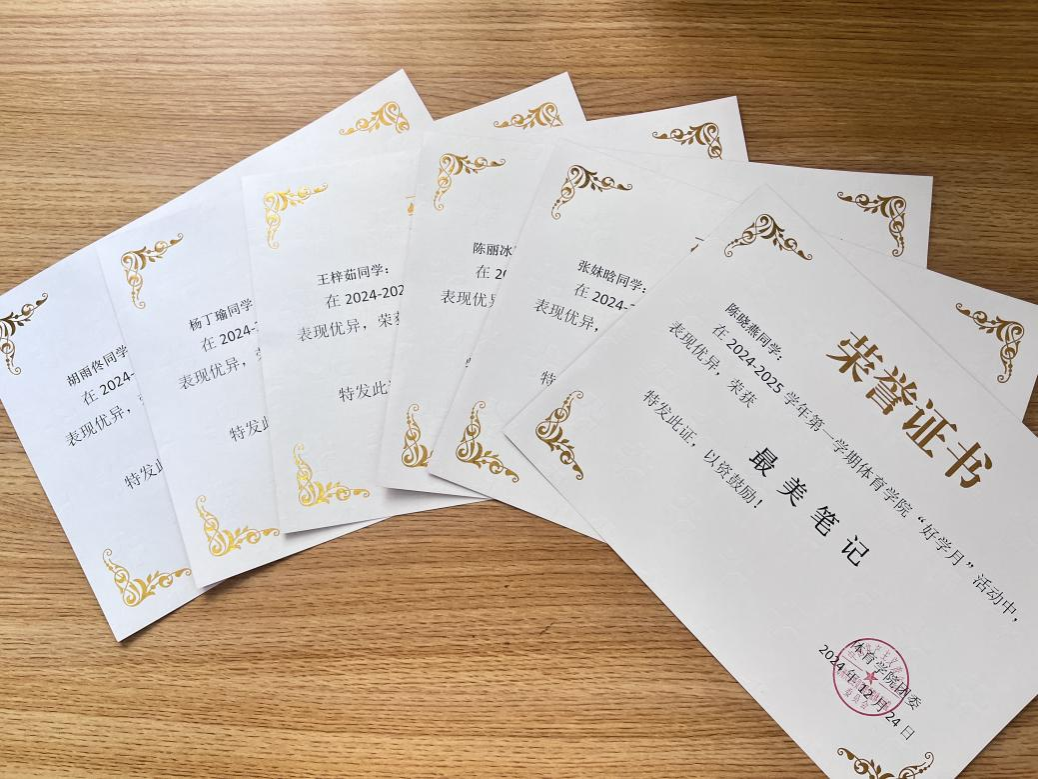 胡雨佟同学
在 2024-
表现优异，
特发此
杨丁瑜同学
在 2024-
表现优异，
特发此
王梓茹同学：
在 2024-202
表现优异，荣获
特发此证
陈丽冰
在 20
表现优异
张妹晗同学：
在 2024-
表现优异，
特
荣誉证书
陈晓燕同学：
在 2024-2025 学年第一学期体育学院“好学月”活动中，
表现优异，荣获
最美笔记
特发此证，以资鼓励！
体育学院团委
2024 年 12 月 24 日